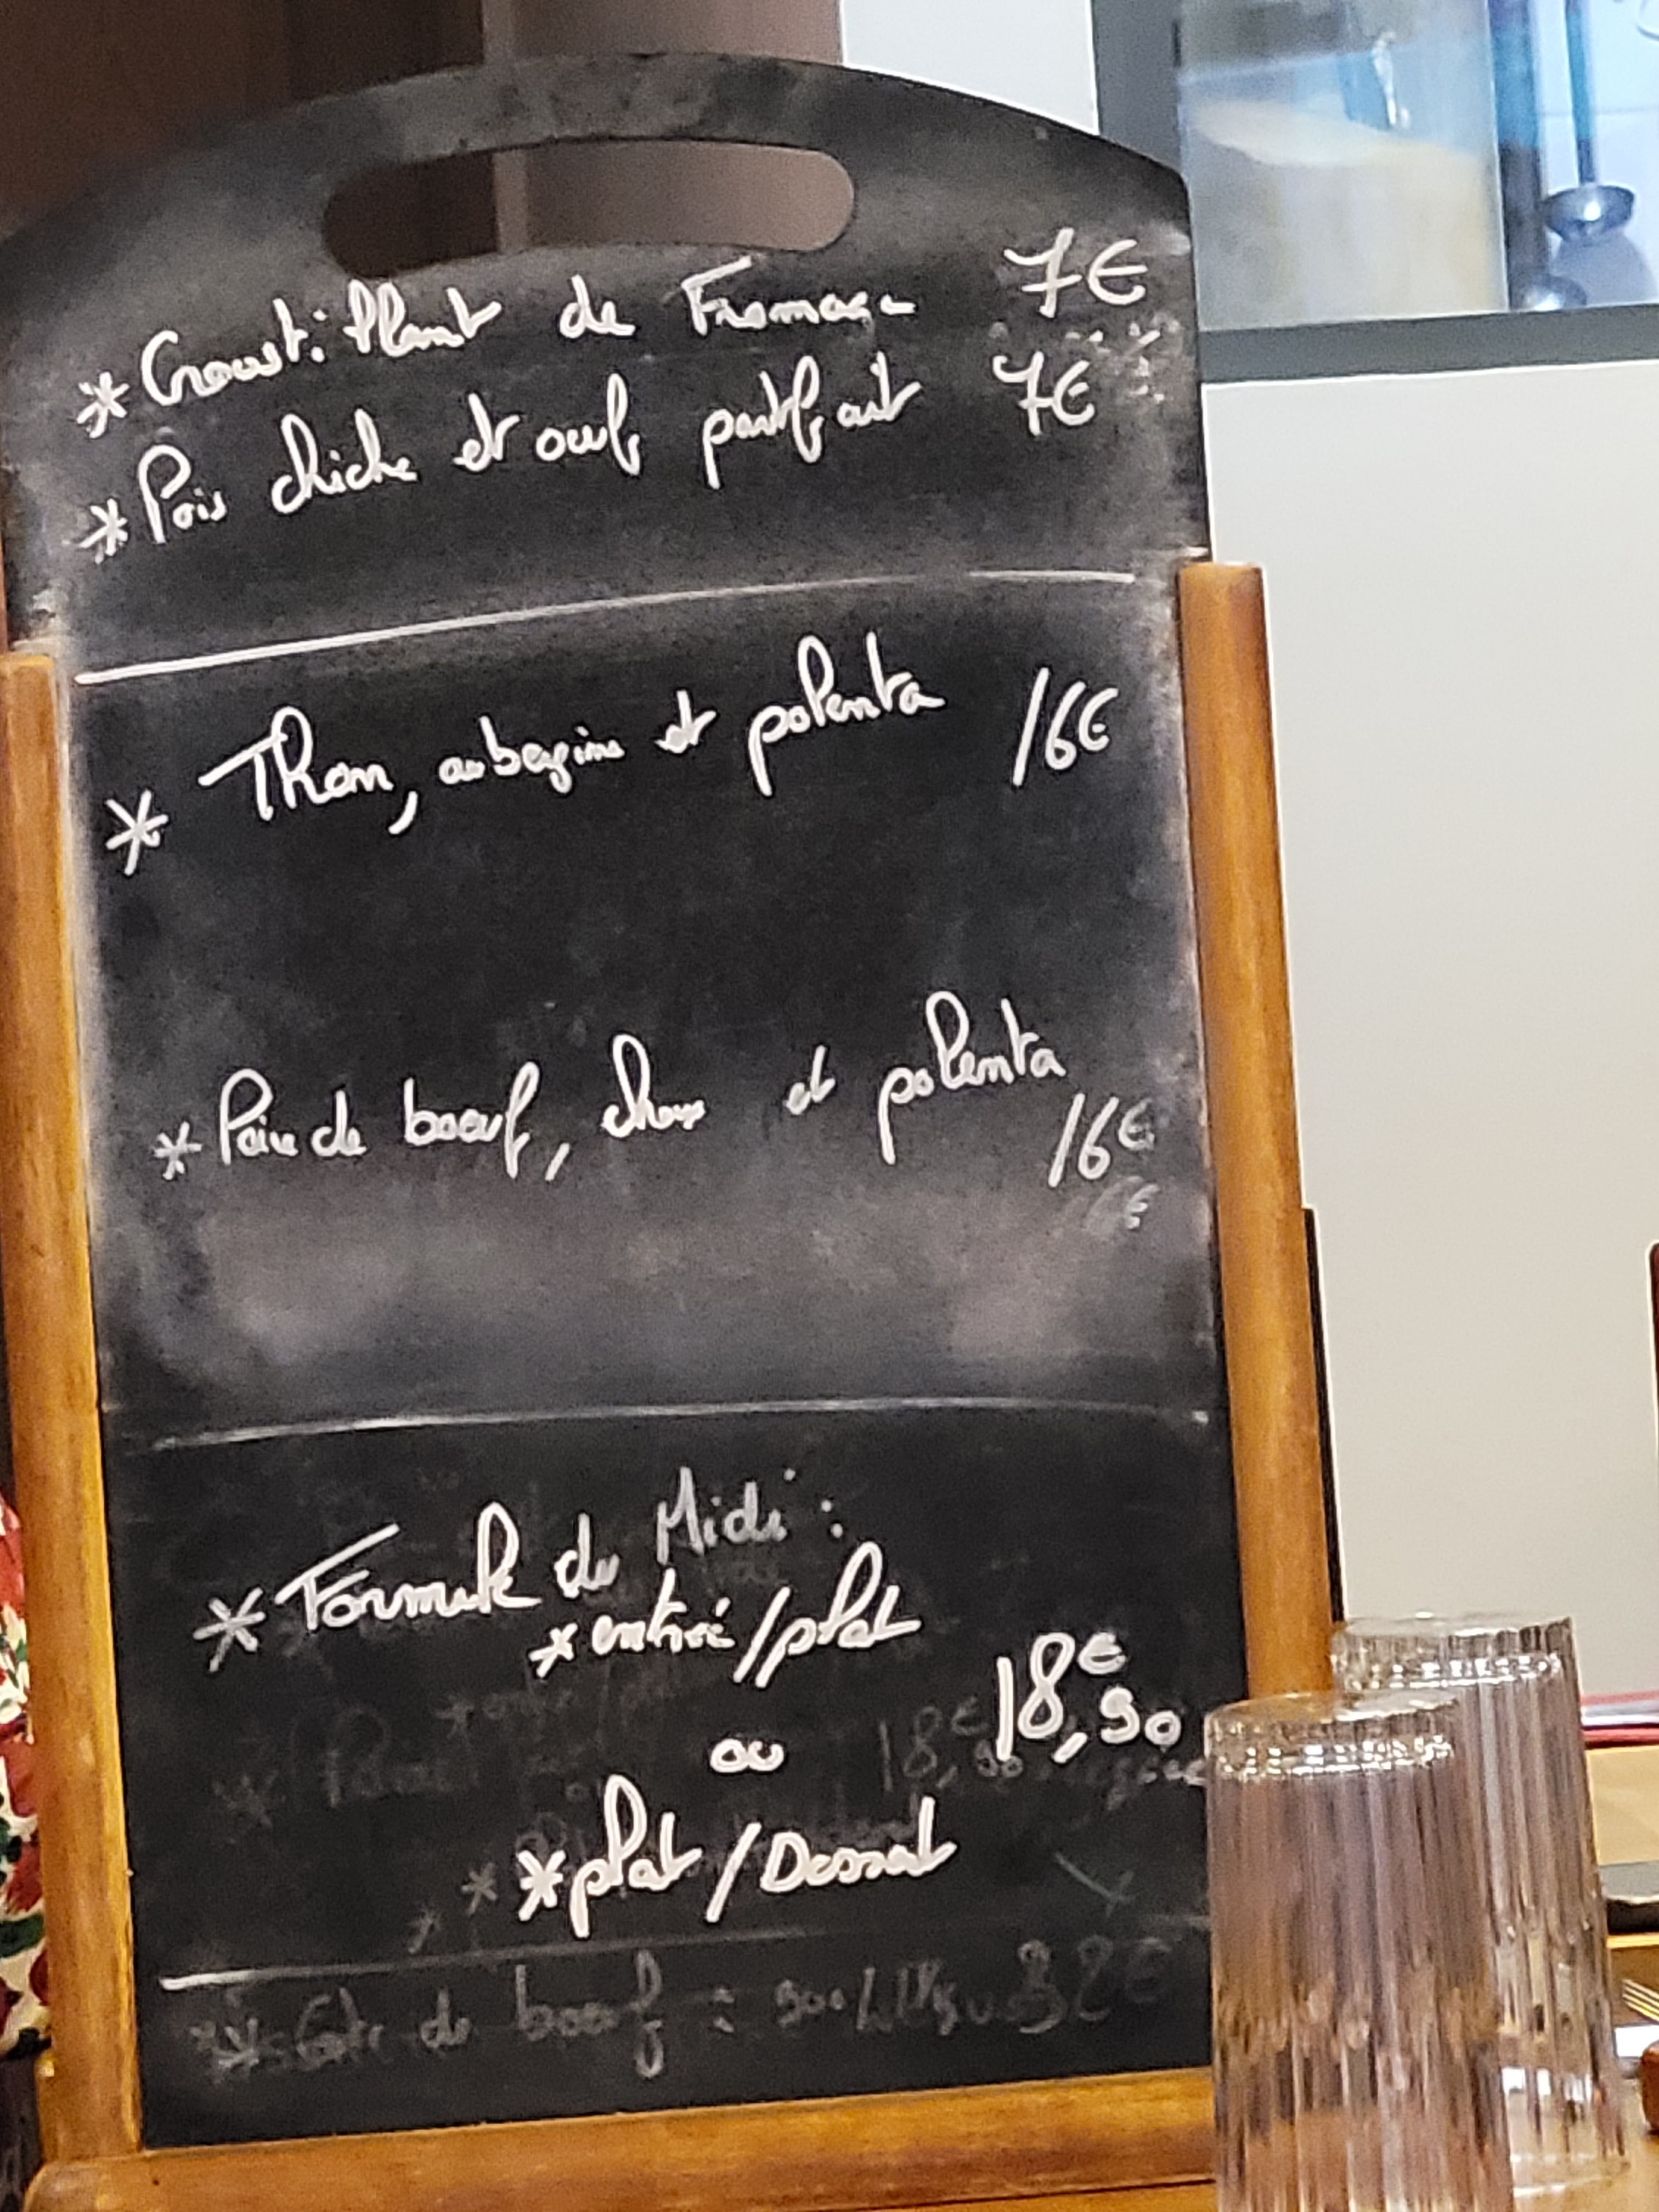 * Croustillant de Fromage 7€
* Pois chiche et oeuf parfait 7€
* Thon, aubergine et polenta 16€
* Poire de boeuf, choux et polenta
16€
* Formule du Midi :
* entrée/plat
18€,90
ou
* plat / Dessert
* Cote de boeuf :